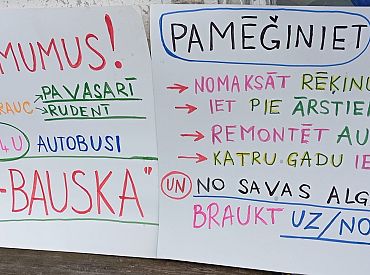 MUMUS!
PAVASARĪ
RAUC
RUDENĪ
LU AUTOBUSI
-BAUSKA"
PAMĒĢINIET
→ NOMAKSĀT RĒĶINU
→ IET PIE ĀRSTIE
→ REMONTĒT AU
→ KATRU GADU IE
UN NO SAVAS ALG
BRAUKT UZ/NO